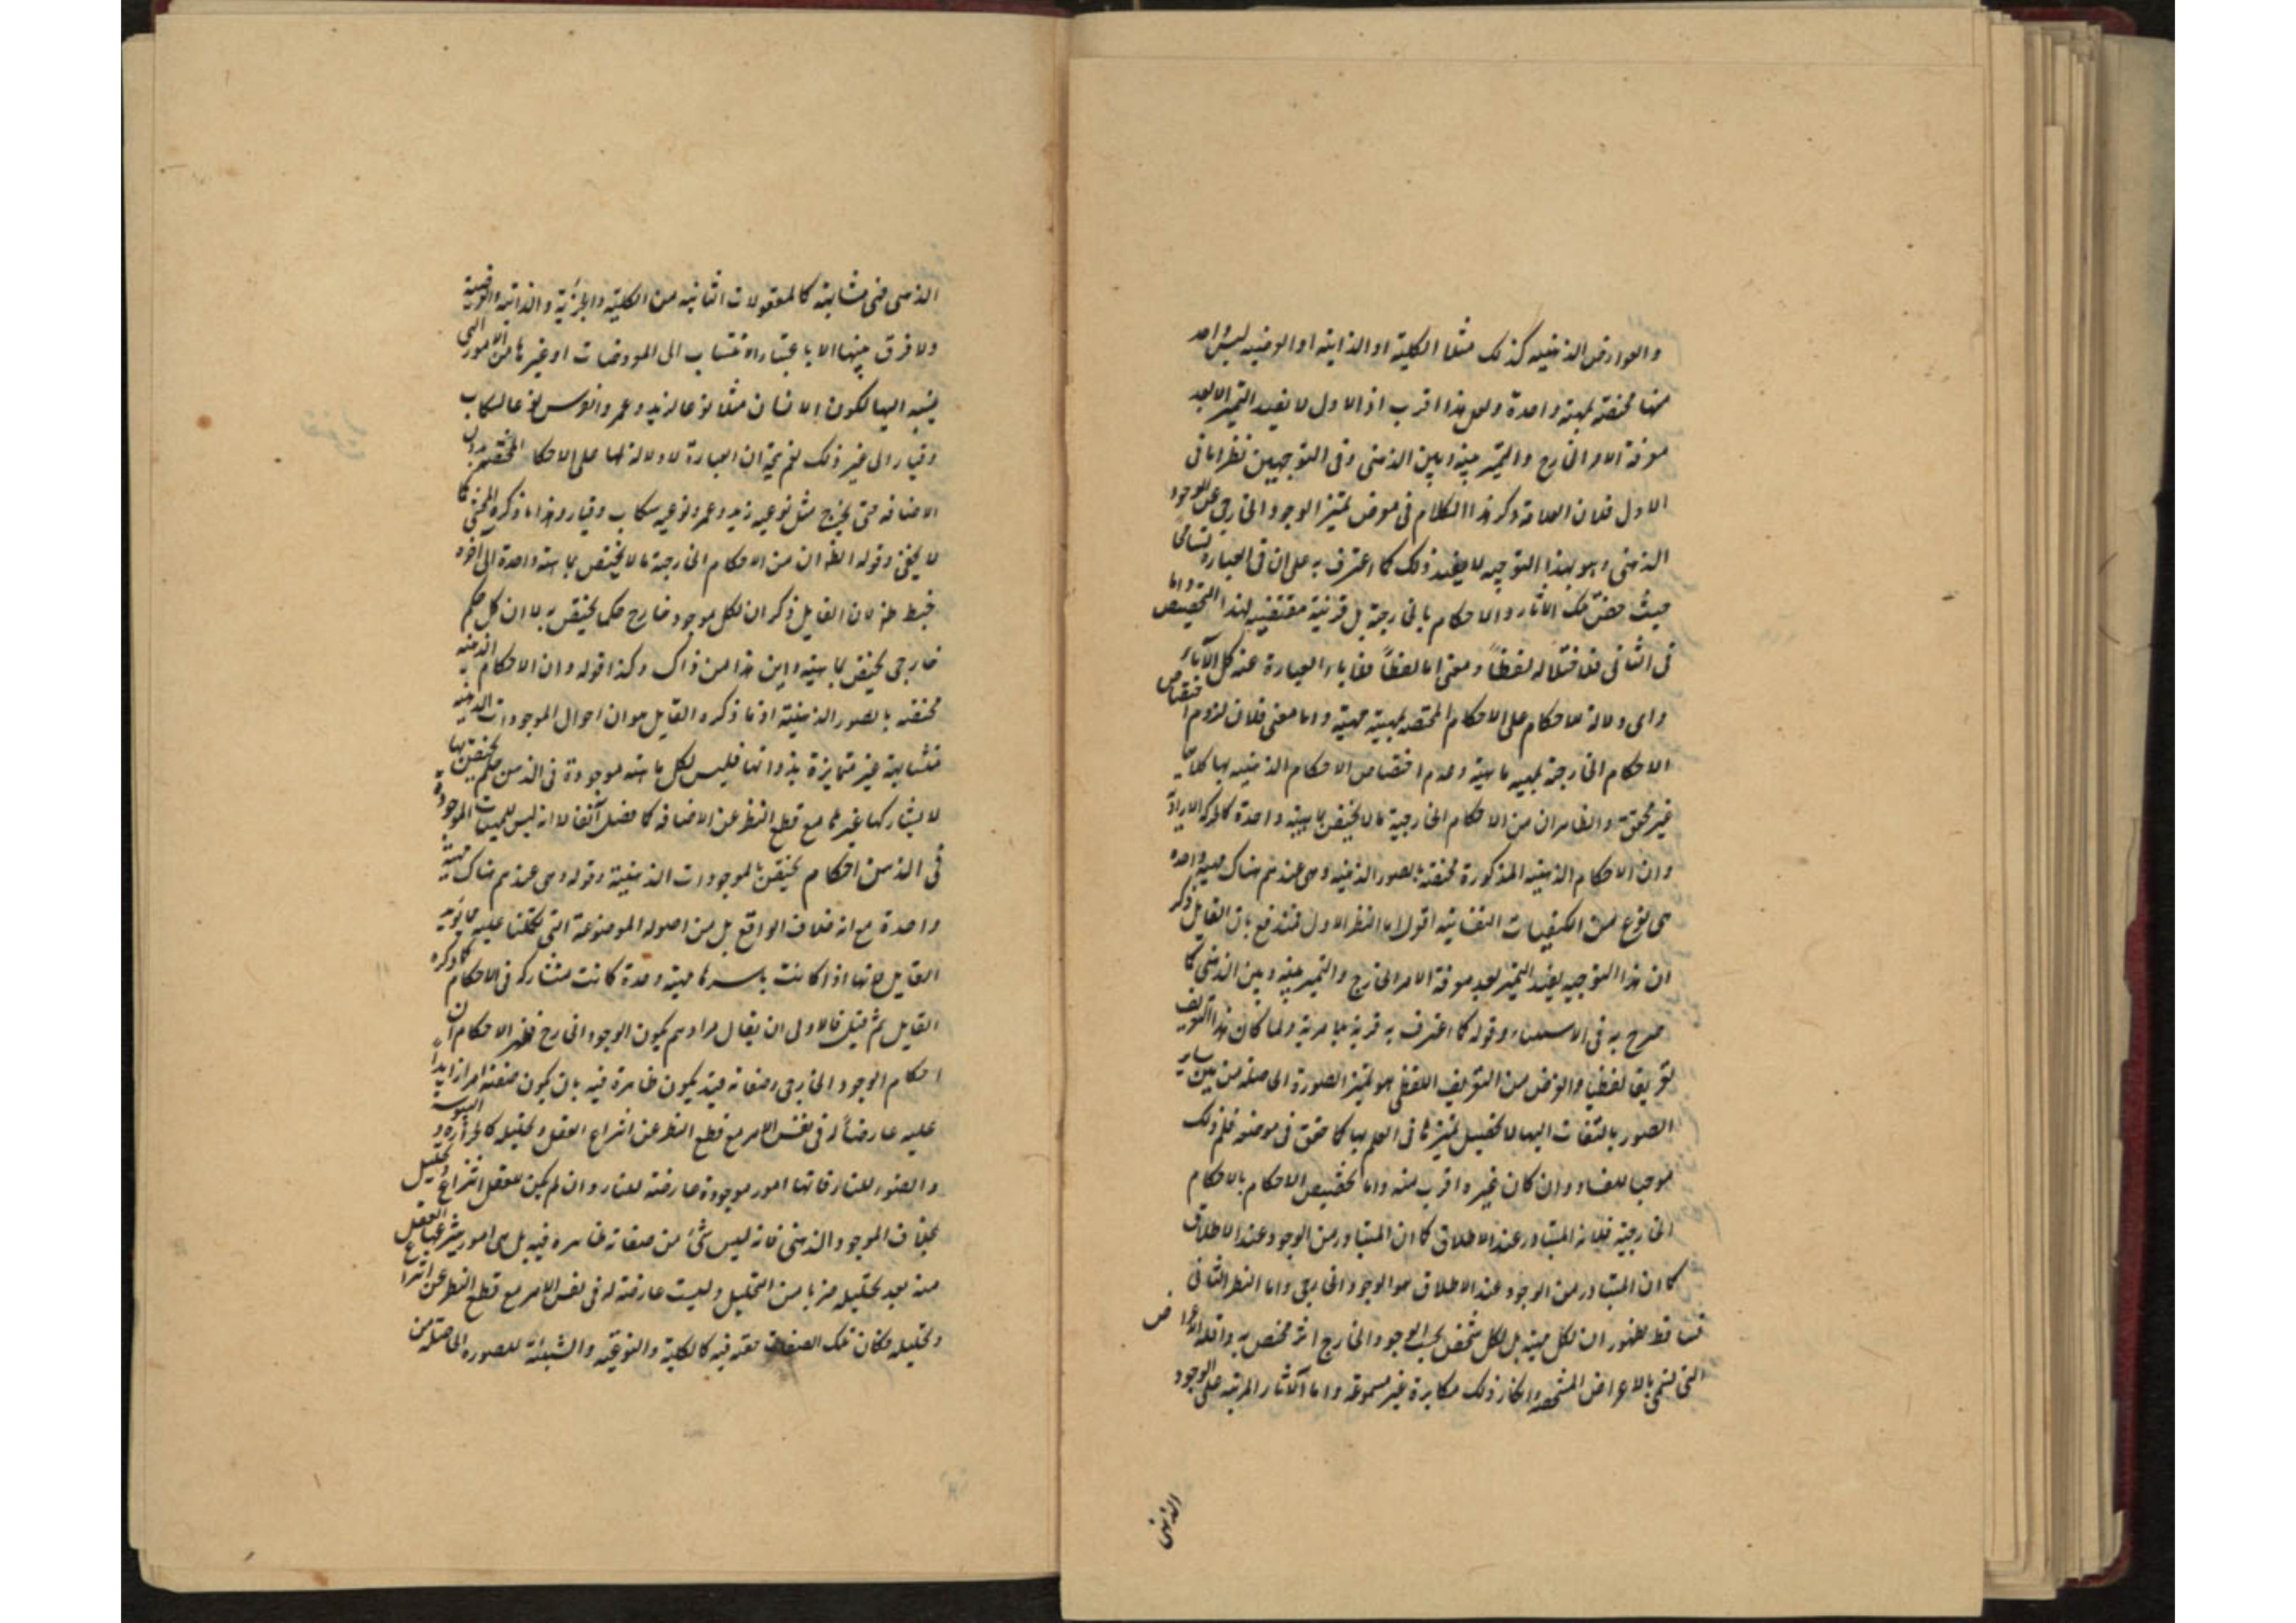 والعوارض الذهنيه كذلك مثلا الكلية او الذاتية او العرضيه ليس واحد
منها مختصة بمهية واحدة ولعل هذا اقرب اذ الاول لا يفيد التميز الا بعد
معرفة الامر الخارج والتميز بينه وبين الذهنى وفى التوجيهين نظر اما فى
الاول فلان العلامة ذكر هذا الكلام فى معرض تميز الوجود الخارجى عن الوجود
الذهنى وهو بهذا التوجيه لا يفيد ذلك كما اعترف به على ان فى العبارة تسامحا
حيث خص تلك الآثار والاحكام بالخارجية بل قرنية مقتضيه لهذا التخصيص واما
فى الثانى فلاختلاله لفظاً ومعنى اما لفظاً فلاباء العبارة عنه كل الآباء
واى دلالة للاحكام على الاحكام المختصه بمهية مهية واما معنى فلان لزوم اختصاص
الاحكام الخارجة بمهيه ماهية وعدم اختصاص الاحكام الذهنيه بها كلاهما
غير محقق والظاهر ان من الاحكام الخارجية ما لا يختص بماهية واحدة كالحركة الارادية
وان الاحكام الذهنية المذكورة مختصة بالصور الذهنيه وهى عندهم هناك مهية واحده
هى نوع من الكيفيات النفسانية اقول اما النظر الاول فمندفع بان القايل ذكر
ان هذا التوجيه يفيد التميز بعد معرفة الامر الخارج والتميز بينه وبين الذهنى كما
صرح به فى الاستثناء وقوله كما اعترف به قرية بلا مرية ولما كان هذا التعريف
تعريفا لفظيا والغرض من التعريف اللفظى هو تميز الصورة الحاصله من بين ساير
الصور بالتفات اليها لا تحصيل تميزها فى العلم بها كما حقق فى موضعه فلم ذلك
موجبا للفساد وان كان غيره اقرب منه واما تخصيص الاحكام بالاحكام
الخارجية فلانه المتبادر عند الاطلاق كما ان المتبادر من الوجود عند الاطلاق
كما ان المتبادر من الوجود عند الاطلاق هو الوجود الخارجى واما النظر الثانى
فساقط لظهور ان لكل مهية بل لكل شخص بحسب الوجود الخارج اثر مختص به واقله الاعراض
التى تسمى بالاعراض المشخصه وانكار ذلك مكابرة غير مسموعة واما الآثار المرتبه على الوجود
الذهنى
الذهنى فهى متشابهة كالمعقولات الثانيه من الكلية والجزئية والذاتية والعرضية
ولا فرق بينها الا باعتبار الانتساب الى المعروضات او غيرها من الامور التى
ينسبه اليها لكون الانسان مثلا نوعا لزيد وعمرو والفرس نوعا لسكاب
وقيار الى غير ذلك نعم يتجه ان العبارة لا دلالة لها على الاحكام المختصه بدون
الاضافه حتى يخرج مثل نوعيه زيد وعمرو ونوعيه سكاب وقيار وهذا ما ذكره المحشى كما
لا يخفى وقوله الظ ان من الاحكام الخارجية ما لا يختص بماهية واحدة الى آخره
خبط منه لان القايل ذكر ان لكل موجود خارج حكما يختص به لا ان كل حكم
خارجى يختص بماهية واين هذا من ذاك وكذا قوله وان الاحكام الذهنيه
مختصه بالصور الذهنية اذ ما ذكره القايل هو ان احوال الموجودات الذهنيه
متشابهة غير متمايزة بذواتها فليس لكل ماهية موجودة فى الذهن حكم يختص بها
لا يشاركها غيرها مع قطع النظر عن الاضافه كما فصل آنفا لا انه ليس للمهيات الموجودة
فى الذهن احكام يختص بالموجودات الذهنية وقوله وهى عندهم هناك مهية
واحدة مع انه خلاف الواقع بل من اصوله الموضوعة التى تكلمنا عليه مما يؤيد
القايل لانها اذا كانت باسرها مهية واحدة كانت متشاركه فى الاحكام كما ذكره
القايل ثم قيل فالاولى ان يقال مرادهم بكون الوجود الخارج مظهر الاحكام ان
احكام الوجود الخارجى وصفاته قيد يكون ظاهرة فيه بان يكون صفته امرا زايداً
عليه عارضاً له فى نفس الامر مع قطع النظر عن انتزاع العقل وتحليله كالحرارة واليبوسة
والضوء للنار فانها امور موجودة عارضة للنار وان لم يكن للعقل انتزاع وتحليل
بخلاف الموجود الذهنى فانه ليس شئ من صفاته ظاهره فيه بل هى امور ينتزعها العقل
منه بعد تحليله ضربا من التحليل وليست عارضة له فى نفس الامر مع قطع النظر عن انتزاع
وتحليله فكان تلك الصفات مخفيه فيه كالكلية والنوعية والشبهة للصورة الحاصلة من